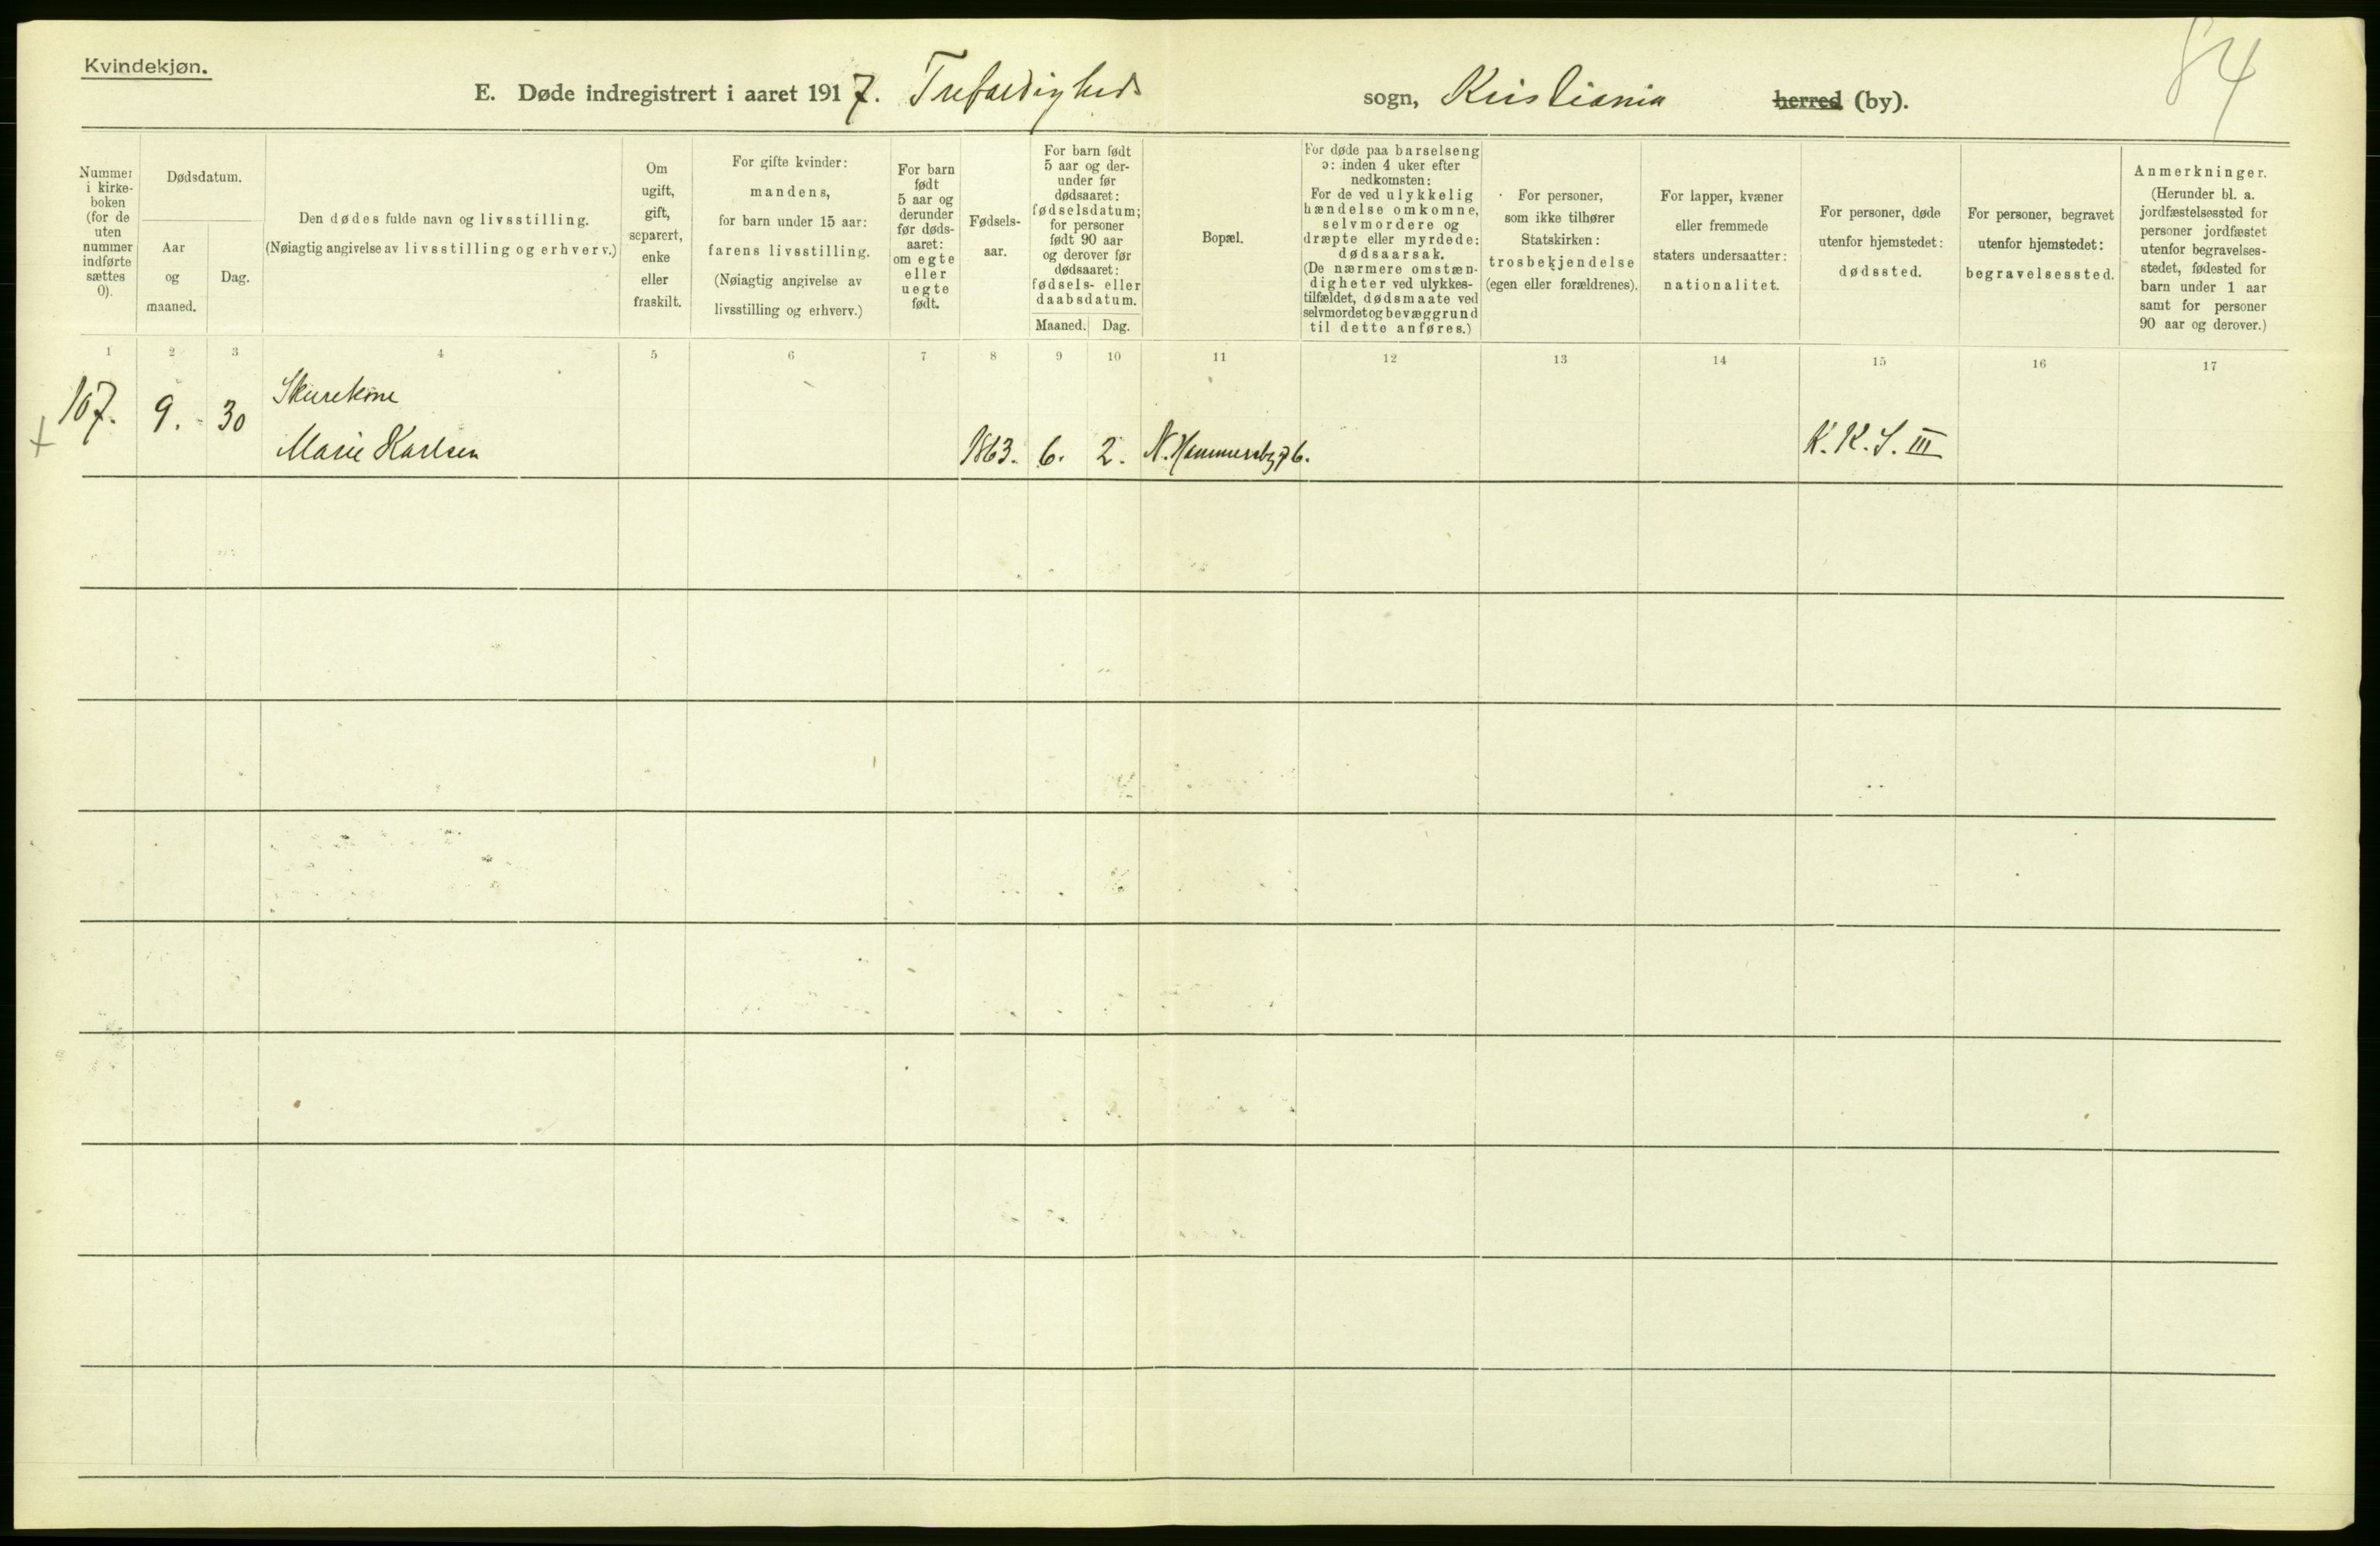 84
Kvindekjøn.
E. Døde indregistrert i aaret 1917. Trefoldigheds sogn, Kristiania herred (by).
Nummer i kirke- boken (for de uten nummer indførte sættes 0).
Dødsdatum.
Aar og maaned.
Dag.
Den dødes fulde navn og livsstilling.
(Nøiagtig angivelse av livsstilling og erhverv.)
Om ugift, gift, separert, enke eller fraskilt.
For gifte kvinder:
mandens,
for barn under 15 aar:
farens livsstilling.
(Nøiagtig angivelse av
livsstilling og erhverv.)
For barn født 5 aar og derunder før døds- aaret: om egte eller uegte født.
Fødsels- aar.
For barn født 5 aar og der- under før dødsaaret: fødselsdatum; for personer født 90 aar og derover før dødsaaret: fødsels- eller daabsdatum.
Maaned. Dag.
Bopæl.
For døde paa barselseng
ɔ: inden 4 uker efter
nedkomsten:
For de ved ulykkelig
hændelse omkomne,
selvmordere og
dræpte eller myrdede:
dødsaarsak.
(De nærmere omstæn-
digheter ved ulykkes-
tilfældet, dødsmaate ved
selvmordet og bevæggrund
til dette anføres.)
For personer,
som ikke tilhører
Statskirken:
trosbekjendelse
(egen eller forældrenes).
For lapper, kvæner
eller fremmede
staters undersaatter:
nationalitet.
For personer, døde
utenfor hjemstedet:
dødssted.
For personer, begravet
utenfor hjemstedet:
begravelsessted.
Anmerkninger.
(Herunder bl. a.
jordfæstelsessted for
personer jordfæstet
utenfor begravelses-
stedet, fødested for
barn under 1 aar
samt for personer
90 aar og derover.)
1 2 3 4 5 6 7 8 9 10 11 12 13 14 15 16 17
Skurekone
+ 107. 9. 30 Marie Karlsen 1863. 6. 2. N. Hammersbg 76. K. K. S. III